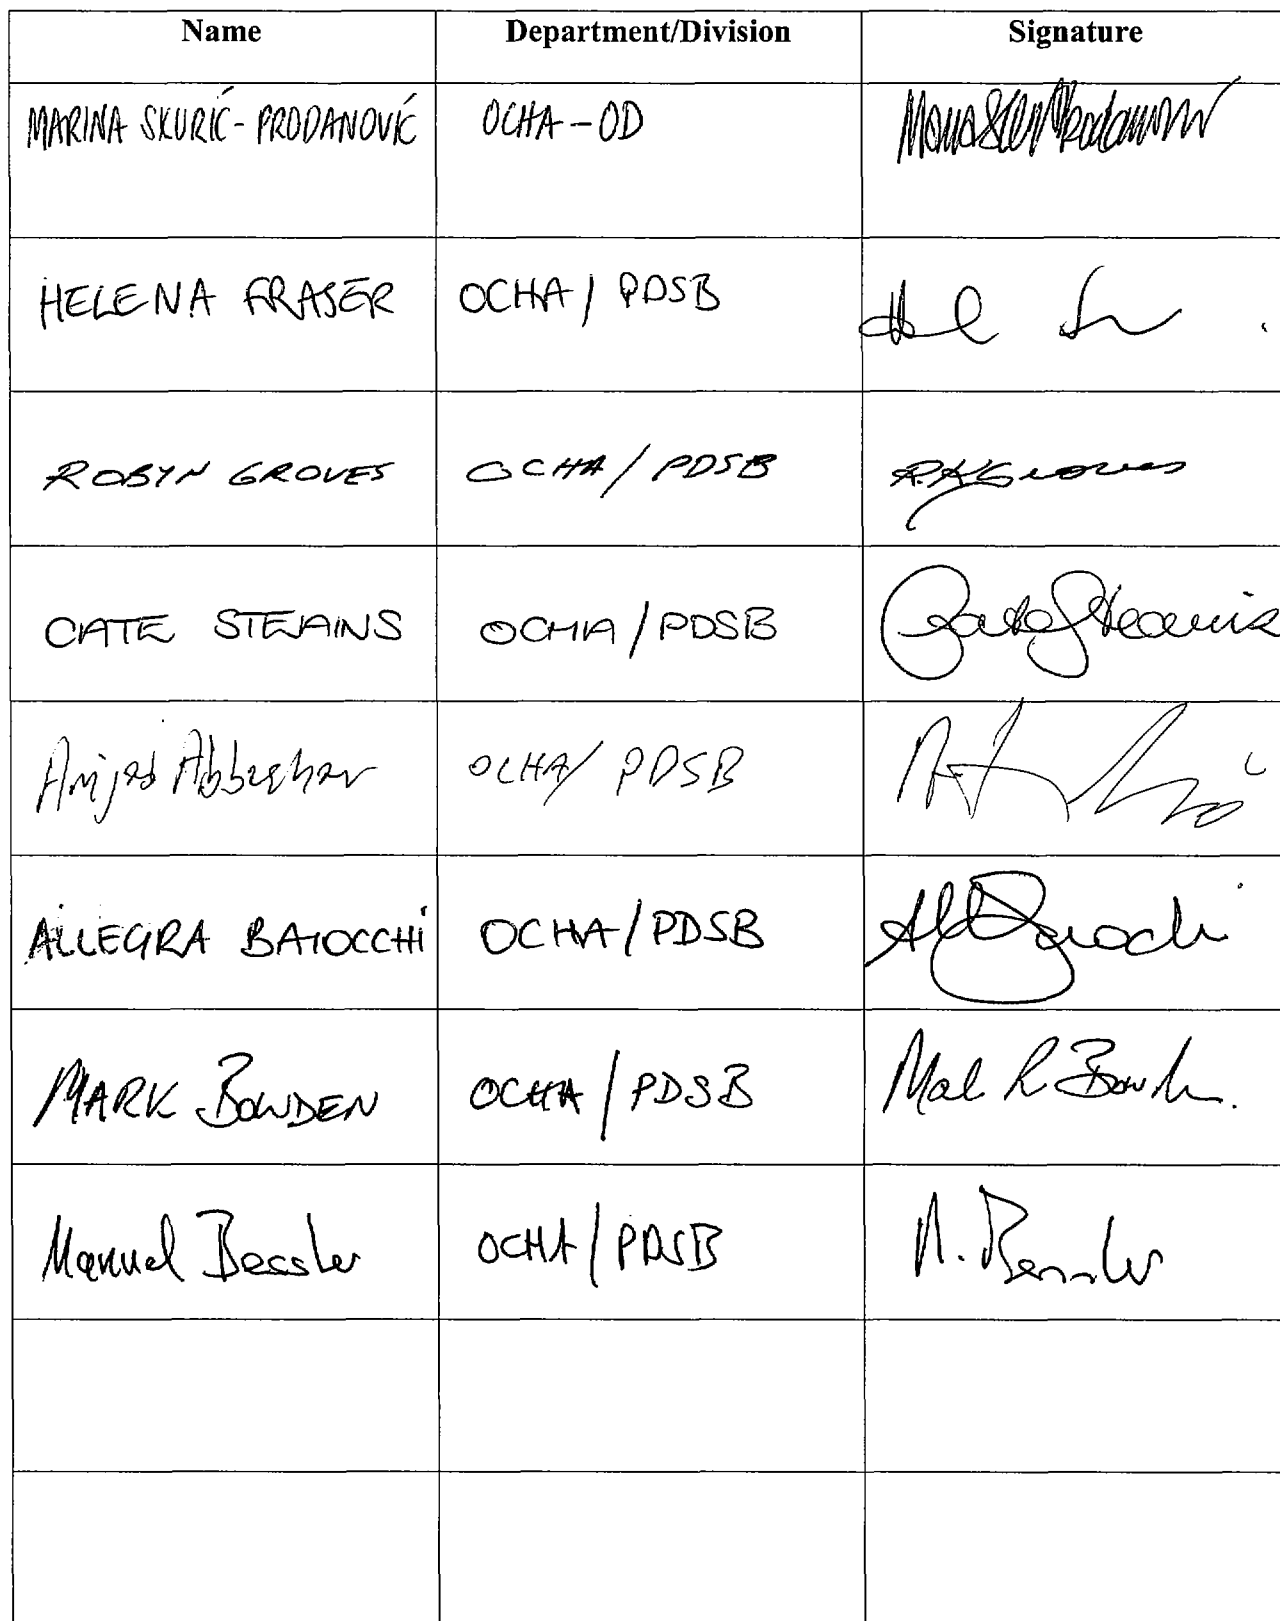 Name Department/Division Signature
MARINA SKURIĆ-PRODANOVIĆ OCHA-OD
HELENA FRASER OCHA / PDSB
ROBYN GROVES OCHA / PDSB R.K Groves
CATE STEAINS OCHA / PDSB Cate Steains
Amjad Abbashar OCHA / PDSB
ALLEGRA BAIOCCHI OCHA / PDSB
MARK BOWDEN OCHA / PDSB
Manuel Bessler OCHA / PDSB M. Bessler